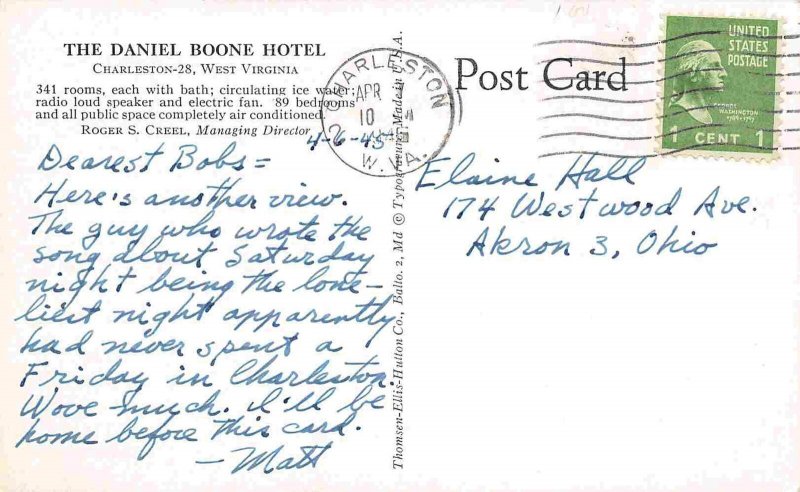 THE DANIEL BOONE HOTEL
CHARLESTON-28, WEST VIRGINIA
341 rooms, each with bath; circulating ice water;
radio loud speaker and electric fan. 89 bedrooms
and all public space completely air conditioned.
ROGER S. CREEL, Managing Director
4-6-45
Dearest Bobs =
Here's another view.
The guy who wrote the
song about Saturday
night being the lone-
liest night apparently
had never spent a
Friday in Charleston.
Wove much. I'll be
home before this card.
- Matt
Thomsen-Ellis-Hutton Co., Balto. 2, Md © Made in U.S.A.
CHARLESTON
2
APR
10
W.VA.
Post Card
UNITED
STATES
POSTAGE
GEORGE
WASHINGTON
1789-1797
1 CENT 1
Elaine Hall
174 Westwood Ave.
Akron 3, Ohio